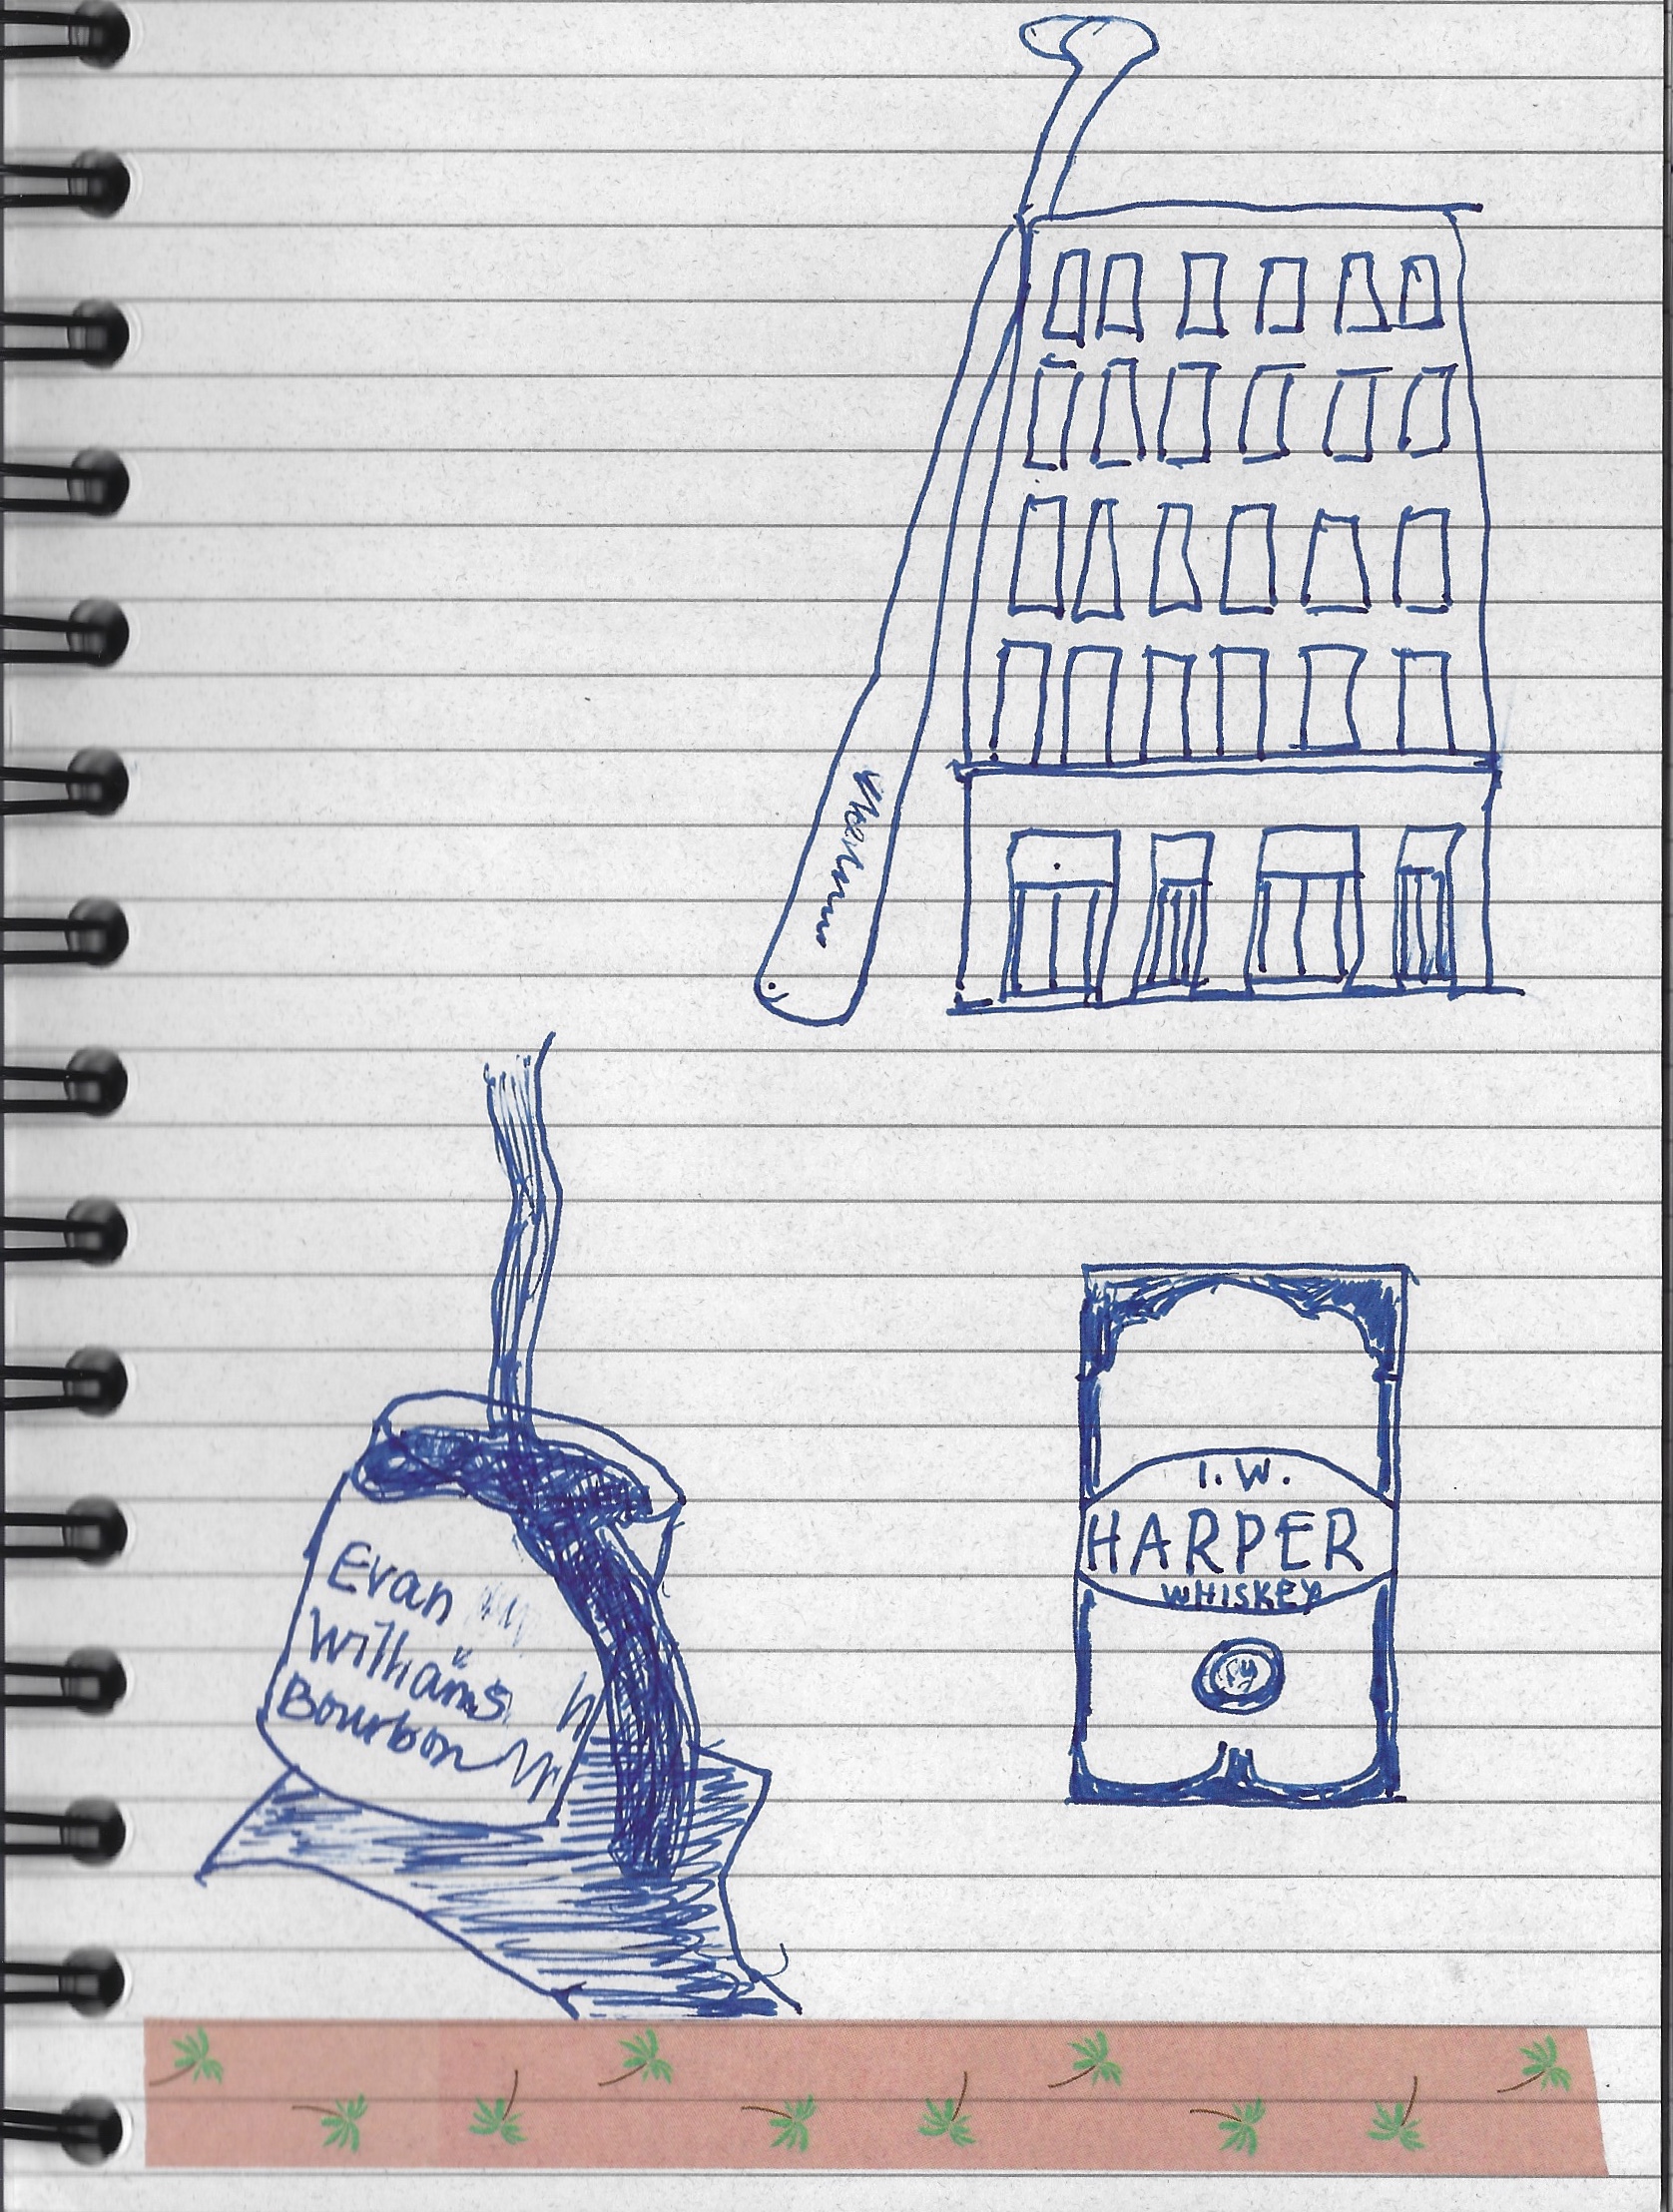 Evan
Williams
Bourbon
I.W.
HARPER
WHISKEY